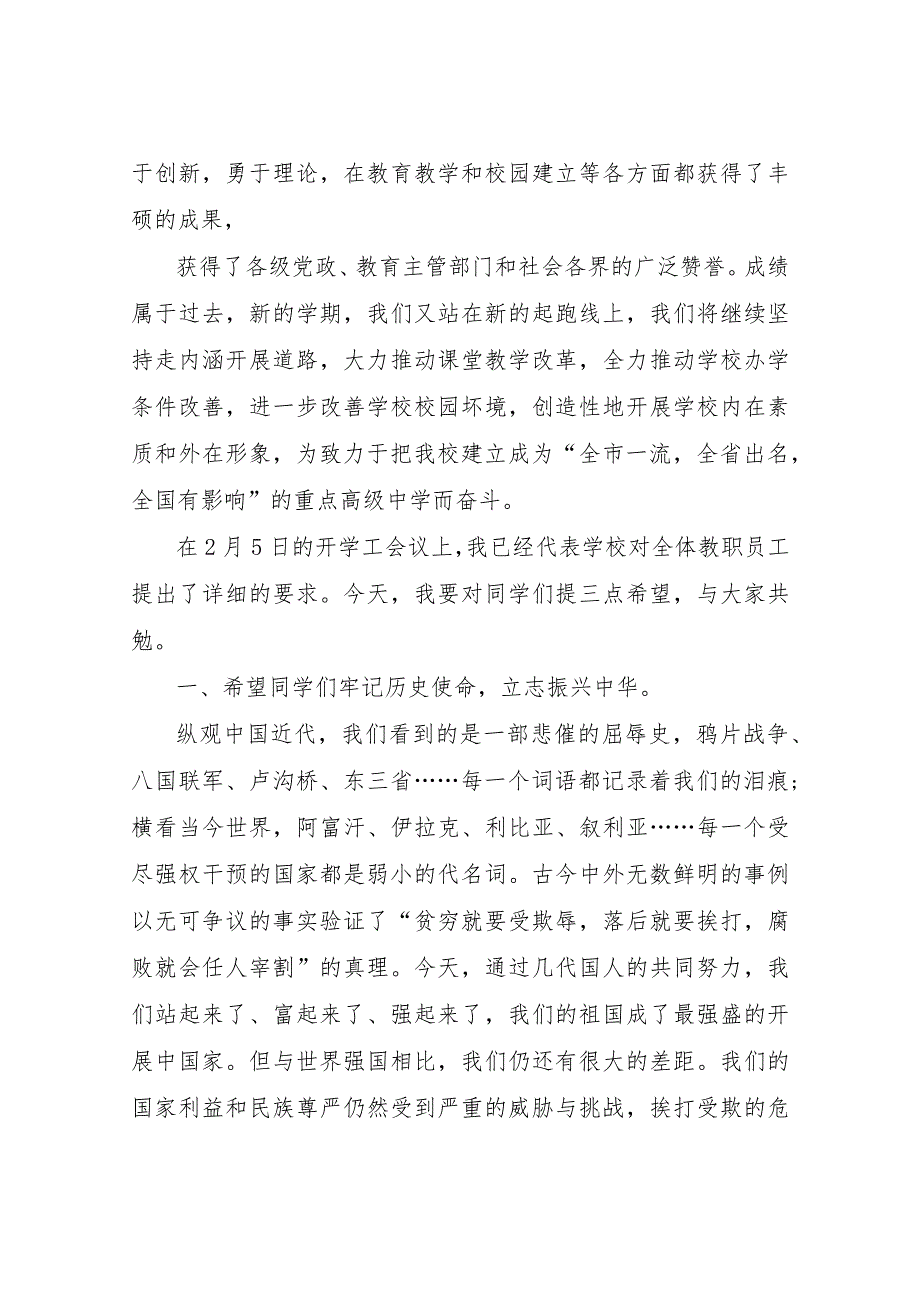 于创新，勇于理论，在教育教学和校园建立等各方面都获得了丰
硕的成果，
获得了各级党政、教育主管部门和社会各界的广泛赞誉。成绩
属于过去，新的学期，我们又站在新的起跑线上，我们将继续坚
持走内涵开展道路，大力推动课堂教学改革，全力推动学校办学
条件改善，进一步改善学校校园坏境，创造性地开展学校内在素
质和外在形象，为致力于把我校建立成为“全市一流，全省出名，
全国有影响”的重点高级中学而奋斗。
在2月5日的开学工会议上，我已经代表学校对全体教职员工
提出了详细的要求。今天，我要对同学们提三点希望，与大家共
勉。
一、希望同学们牢记历史使命，立志振兴中华。
纵观中国近代，我们看到的是一部悲催的屈辱史，鸦片战争、
八国联军、卢沟桥、东三省……每一个词语都记录着我们的泪痕；
横看当今世界，阿富汗、伊拉克、利比亚、叙利亚……每一个受
尽强权干预的国家都是弱小的代名词。古今中外无数鲜明的事例
以无可争议的事实验证了“贫穷就要受欺辱，落后就要挨打，腐
败就会任人宰割”的真理。今天，通过几代国人的共同努力，我
们站起来了、富起来了、强起来了，我们的祖国成了最强盛的开
展中国家。但与世界强国相比，我们仍还有很大的差距。我们的
国家利益和民族尊严仍然受到严重的威胁与挑战，挨打受欺的危